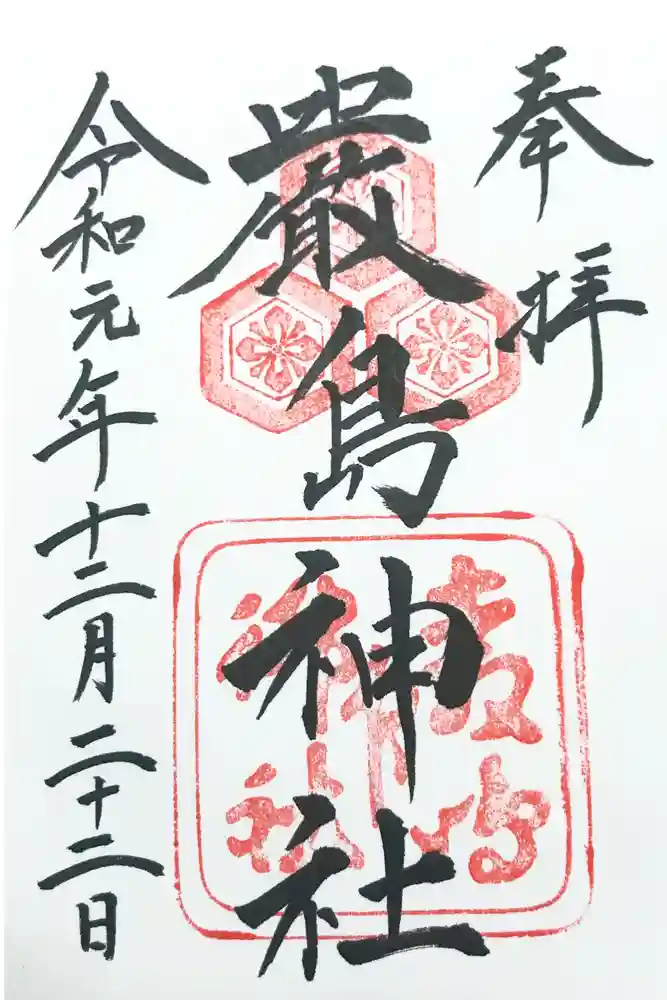 奉拝
嚴島神社
令和元年十二月二十二日